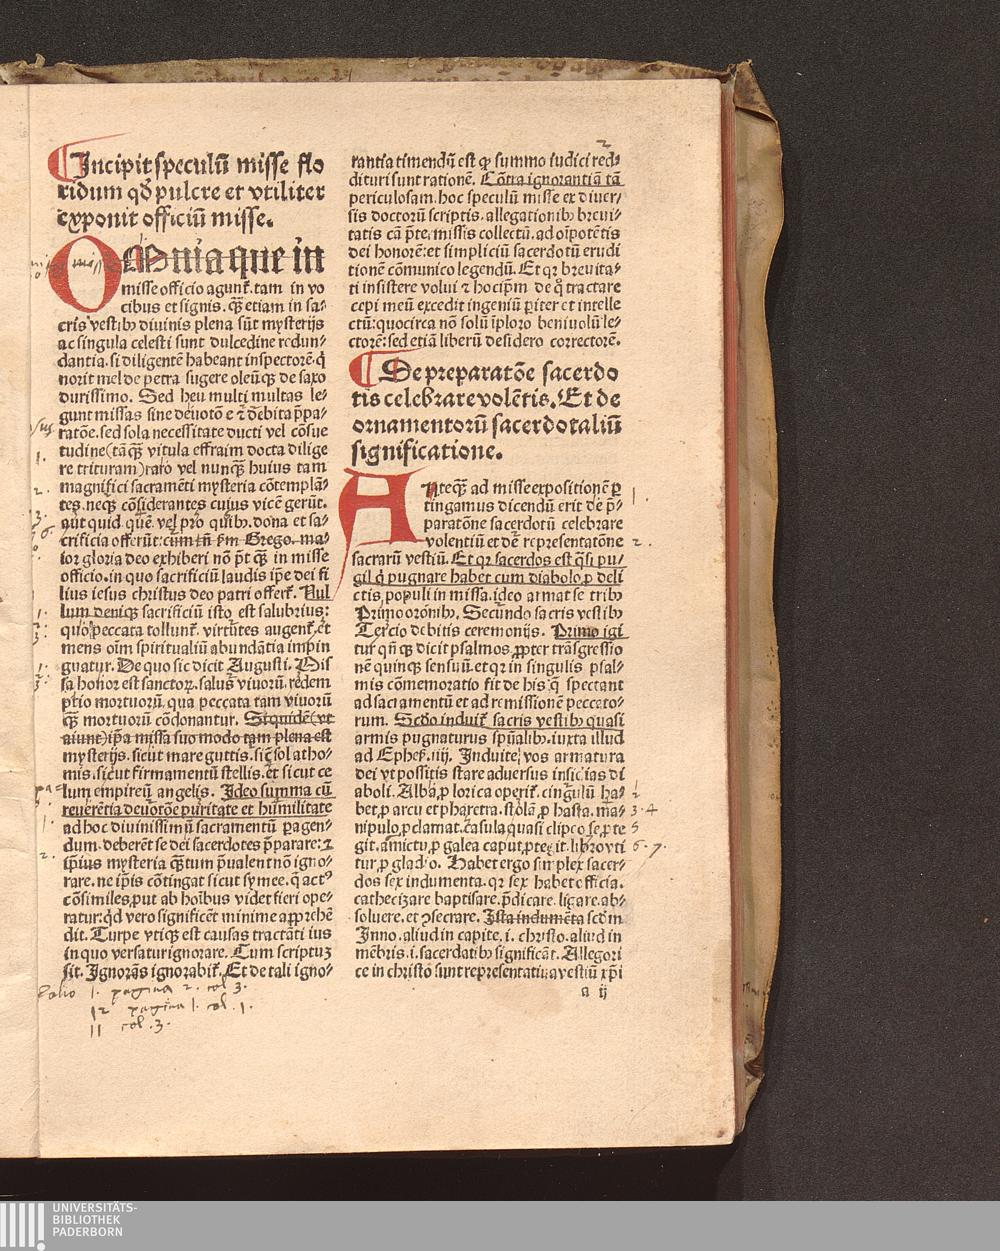 2
Incipit speculũ misse flo
ridum qd̃ pulcre et vtiliter
exponit officiũ misse.
OMnia que in
misse officio agunt̃. tam in vo
cibus et signis. q̃ȝ etiam in sa⸗
cris vestibꝫ diuinis plena sũt mysterijs
ac singula celesti sunt dulcedine redun⸗
dantia. si diligentẽ habeant inspectorẽ. q̃
norit mel de petra sugere oleũqȝ de saxo
durissimo. Sed heu multi multas le⸗
gunt missas sine deuotõe ⁊ debita p̃pa⸗
ratõe. sed sola necessitate ducti vel cõsue
tudine (tãq̃ȝ vitula effraim docta dilige
re trituram) raro vel nunq̃ȝ huius tam
magnifici sacramẽti mysteria cõtemplã⸗
tes. neqȝ cõsiderantes cuius vicẽ gerũt.
aut quid quẽ. vel pro quibꝫ. dona et sa⸗
crificia offerũt: cũm tñ ẜm Grego. ma⸗
ior gloria deo exhiberi nõ p̃t q̃ȝ in misse
officio. in quo sacrificiũ laudis ip̃e dei fi
lius iesus christus deo patri offert̃. Nul
lum deniqȝ sacrificiũ isto est salubrius:
quo peccata tollunt̃. virtutes augent̃. et
mens oĩm spiritualiũ abundãtia impin
guatur. De quo sic dicit Augusti. Mis
sa honor est sanctoꝝ. salus viuorũ. redem
ptio mortuorũ. qua peccata tam viuorũ
q̃ȝ mortuorũ cõdonantur. Siquidẽ (vt
aiunt) ip̃a missa suo modo tam plena est
mysterijs. sicut mare guttis. sic̃ sol atho⸗
mis. sicut firmamentũ stellis. et sicut ce
lum empireũ angelis. Ideo summa cũ
reuerẽtia deuotõe puritate et humilitate
ad hoc diuinissimũ sacramentũ ꝑagen⸗
dum. deberẽt se dei sacerdotes p̃parare: ⁊
ip̃ius mysteria q̃ȝtum p̃ualent nõ igno⸗
rare. ne ip̃is cõtingat sicut symee. q̃ actꝰ
cõsimiles. put ab hoĩbus videt fieri ope⸗
ratur: qd̃ vero significẽt minime apprehẽ
dit. Turpe vtiqȝ est causas tractãti ius
in quo versatur ignorare. Cum scriptuȝ
sit. Ignorãs ignorabit̃. Et de tali igno⸗
rantia timendũ est ꝙ summo iudici red⸗
dituri sunt rationẽ. Cõtra ignorantiã tã
periculosam. hoc speculũ misse ex diuer⸗
sis doctorũ scriptis. allegationibꝫ breui⸗
tatis cã p̃termissis collectũ. ad oĩpotẽtis
dei honorẽ: et simpliciũ sacerdotũ erudi
tionẽ cõmunico legendũ. Et qꝛ breuita⸗
ti insistere volui ⁊ hoc ip̃m de q̃ tractare
cepi meũ excedit ingeniũ pariter et intelle
ctũ: quocirca nõ solũ iploro beniuolũ le⸗
ctorẽ: sed etiã liberũ desidero correctorẽ.
De preparatõe sacerdo
tis celebrare volẽtis. Et de
ornamentorũ sacerdotaliũ
significatione.
Anteq̃ȝ ad misse expositionẽ ꝑ
tingamus dicendũ erit de p̃⸗
paratõne sacerdotũ celebrare
volentiũ et de representatõne
sacrarũ vestiũ. Et qꝛ sacerdos est q̃si pu⸗
gil q̃ pugnare habet cum diabolo ꝓ deli
ctis populi in missa. ideo armat se tribꝫ
Primo orõnibꝫ. Secundo sacris vestibꝫ
Tercio debitis ceremonijs. Primo igi
tur qñqȝ dicit psalmos. ꝓpter trãsgressio
nẽ quinqȝ sensuũ. et qꝛ in singulis psal⸗
mis cõmemoratio fit de his q̃ spectant
ad sacramentũ et ad remissionẽ peccato⸗
rum. Scd̃o induit̃ sacris vestibꝫ quasi
armis pugnaturus spũalibꝫ. iuxta illud
ad Ephes̃. iiij. Induite vos armatura
dei vt possitis stare aduersus insidias di
aboli. Alba ꝓ lorica operit̃. cingulũ ha⸗
bet ꝓ arcu et pharetra. stolã ꝓ hasta. ma⸗
nipulo ꝓ clamat. casula quasi clipeo se ꝓte
git. amictu ꝓ galea caput ꝓtegit. libro vti
tur ꝓ gladio. Habet ergo simplex sacer⸗
dos sex indumenta. qꝛ sex habet officia.
cathecizare baptisare. p̃dicare. ligare. ab⸗
soluere. et ꝯsecrare. Ista indumẽta scd̃m
Inno. aliud in capite. i. christo. aliud in
mẽbris. i. sacerdotibꝫ significãt. Allegori
ce in christo sunt representatiua vestiũ xp̃i
a ij
folio 1. pagina 2. col 3.
12 pagina 1. col. 1.
11 col. 3.
UNIVERSITÄTS-
BIBLIOTHEK
PADERBORN